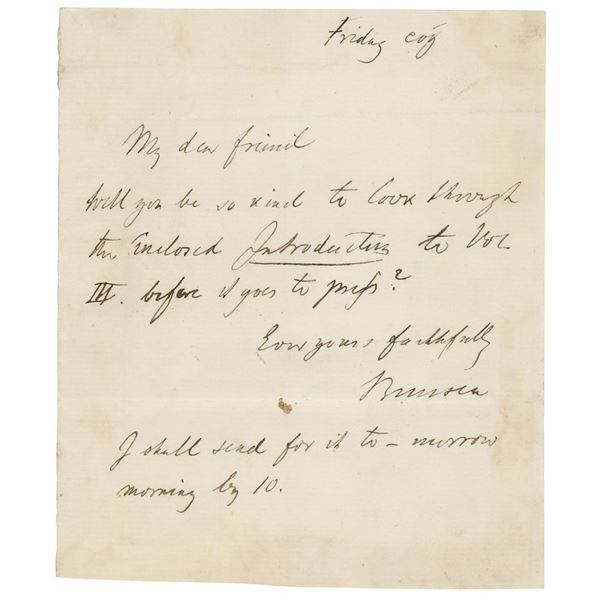 Friday
My dear friend
Will you be so kind to look through
the enclosed Introduction to Vol
III. before it goes to press?
Ever yours faithfully
Bunsen
I shall send for it to-morrow
morning by 10.